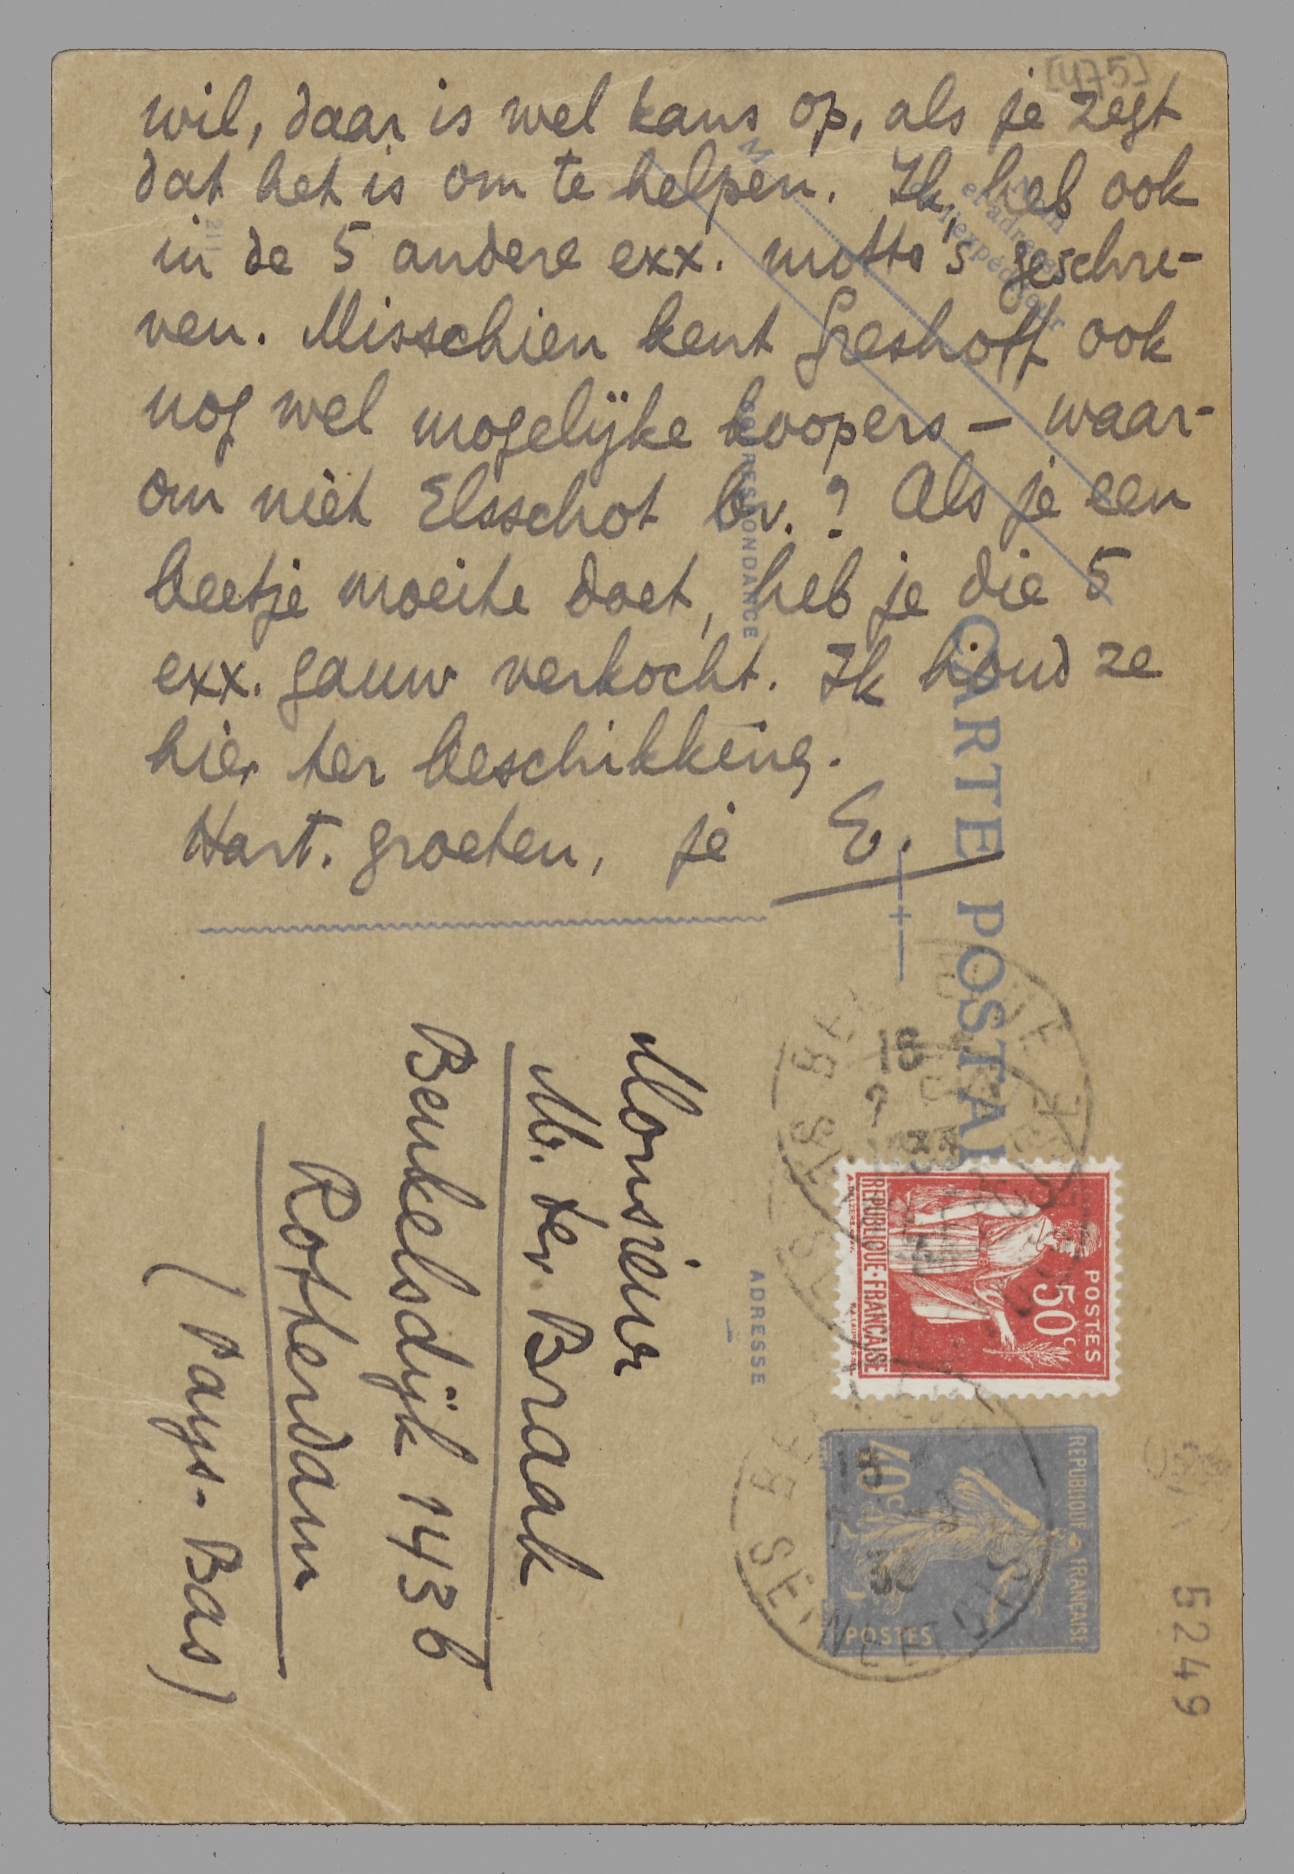 [475]
wil, daar is wel kans op, als je zegt
dat het is om te helpen. Ik heb ook
in de 5 andere exx. motto's geschre-
ven. Misschien kent Greshoff ook
nog wel mogelijke koopers — waar-
om niet Elsschot bv.? Als je een
beetje moeite doet, heb je die 5
exx. gauw verkocht. Ik houd ze
hier ter beschikking.
Hart. groeten, je E.
CORRESPONDANCE
CARTE POSTAL
Monsieur
M. ter Braak
Beukelsdijk 143b
Rotterdam
(Pays-Bas)
ADRESSE
POSTES
50c
REPUBLIQUE·FRANÇAISE
REPUBLIQUE FRANÇAISE
40c
POSTES
5249